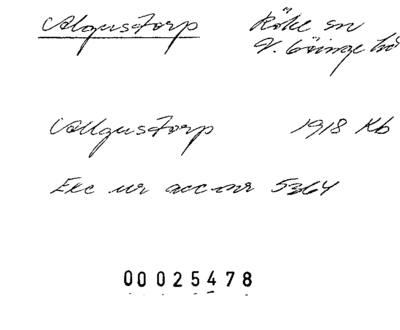 Algustorp Röke sn
V. Göinge hd
Allgustorp 1918 Kb
Exc ur acc nr 5364
00025478